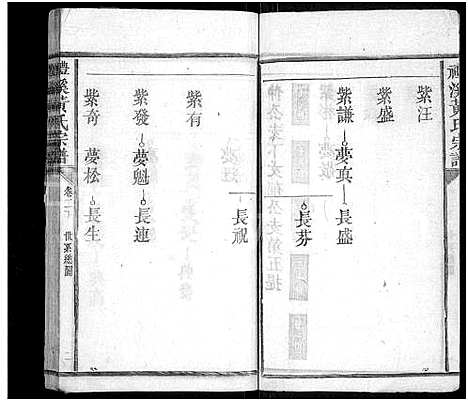 紫汪
紫盛
紫謙 夢真 長盛
長芬
長祝
紫有
紫發 夢魁 長連
紫奇 夢松 長生
澧溪黃氏宗譜 卷二下 世系總圖 二
溪黃氏宗譜